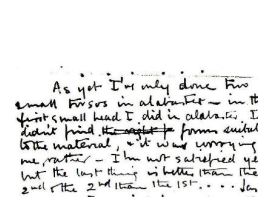 As yet I've only done two
small torsos in alabaster – in th
first small head I did in alabaster I
didn't find the right f forms suitab
to the material, & it was worrying
me, rather – I'm not satisfied ye
but the last thing is better than the
2nd & the 2nd than the 1st . . . .